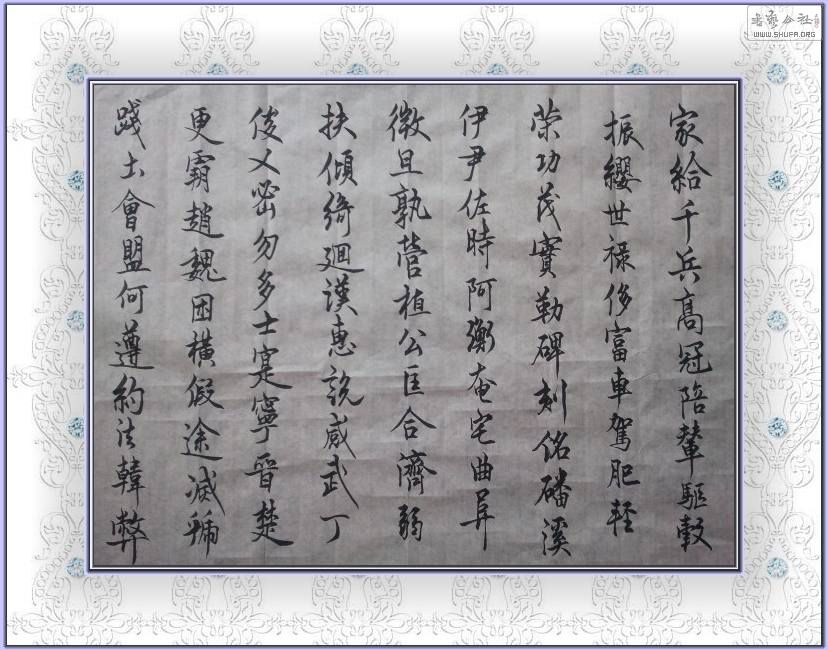 家給千兵高冠陪輦驅轂
振纓世祿侈富車駕肥輕
策功茂實勒碑刻銘磻溪
伊尹佐時阿衡奄宅曲阜
微旦孰營桓公匡合濟弱
扶傾綺迴漢惠說感武丁
俊乂密勿多士寔寧晉楚
更霸趙魏困橫假途滅虢
踐土會盟何遵約法韓弊
书艺公社
WWW.SHUFA.ORG